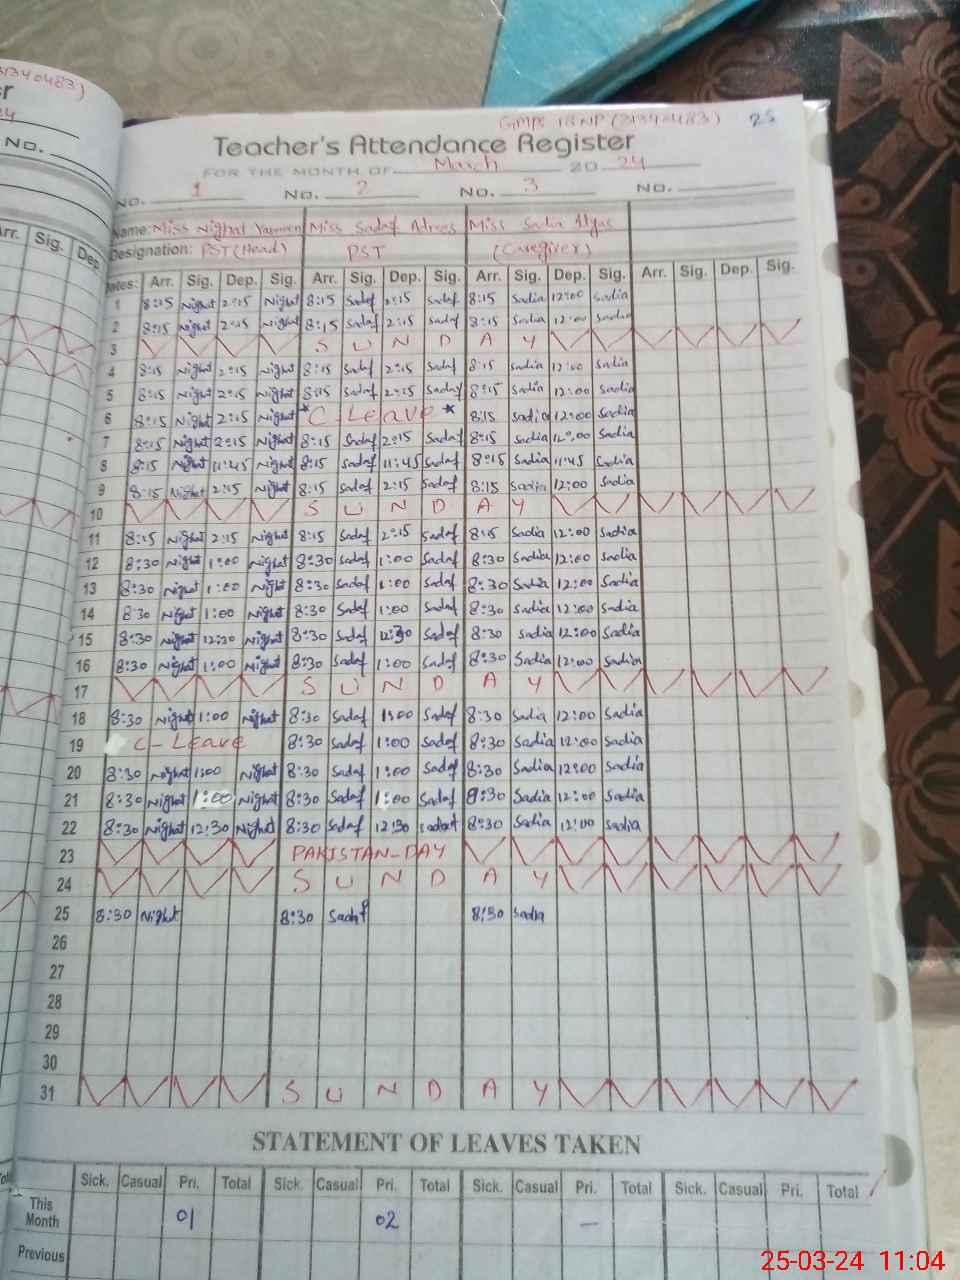 31340483)
GMPS 18 NP (31340483) 25
Teacher's Attendance Register
FOR THE MONTH OF March 20 24
No. 1 No. 2 No. 3 No.
Name: Miss Nighat Yasmeen Miss Sadaf Adrees Miss Sadia Alyas
Designation: PST (Head) PST (Caregiver)
Dates: Arr. Sig. Dep. Sig. Arr. Sig. Dep. Sig. Arr. Sig. Dep. Sig. Arr. Sig. Dep. Sig.
1 8:15 Nighat 2:15 Nighat 8:15 Sadaf 2:15 Sadaf 8:15 Sadia 12:00 Sadia
2 8:15 Nighat 2:15 Nighat 8:15 Sadaf 2:15 Sadaf 8:15 Sadia 12:00 Sadia
3 S U N D A Y
4 8:15 Nighat 2:15 Nighat 8:15 Sadaf 2:15 Sadaf 8:15 Sadia 12:00 Sadia
5 8:15 Nighat 2:15 Nighat 8:15 Sadaf 2:15 Sadaf 8:15 Sadia 12:00 Sadia
6 8:15 Nighat 2:15 Nighat * C-Leave * 8:15 Sadia 12:00 Sadia
7 8:15 Nighat 2:15 Nighat 8:15 Sadaf 2:15 Sadaf 8:15 Sadia 12:00 Sadia
8 8:15 Nighat 11:45 Nighat 8:15 Sadaf 11:45 Sadaf 8:15 Sadia 11:45 Sadia
9 8:15 Nighat 2:15 Nighat 8:15 Sadaf 2:15 Sadaf 8:15 Sadia 12:00 Sadia
10 S U N D A Y
11 8:15 Nighat 2:15 Nighat 8:15 Sadaf 2:15 Sadaf 8:15 Sadia 12:00 Sadia
12 8:30 Nighat 1:00 Nighat 8:30 Sadaf 1:00 Sadaf 8:30 Sadia 12:00 Sadia
13 8:30 Nighat 1:00 Nighat 8:30 Sadaf 1:00 Sadaf 8:30 Sadia 12:00 Sadia
14 8:30 Nighat 1:00 Nighat 8:30 Sadaf 1:00 Sadaf 8:30 Sadia 12:00 Sadia
15 8:30 Nighat 12:30 Nighat 8:30 Sadaf 12:30 Sadaf 8:30 Sadia 12:00 Sadia
16 8:30 Nighat 1:00 Nighat 8:30 Sadaf 1:00 Sadaf 8:30 Sadia 12:00 Sadia
17 S U N D A Y
18 8:30 Nighat 1:00 Nighat 8:30 Sadaf 1:00 Sadaf 8:30 Sadia 12:00 Sadia
19 C-Leave 8:30 Sadaf 1:00 Sadaf 8:30 Sadia 12:00 Sadia
20 8:30 Nighat 1:00 Nighat 8:30 Sadaf 1:00 Sadaf 8:30 Sadia 12:00 Sadia
21 8:30 Nighat 1:00 Nighat 8:30 Sadaf 1:00 Sadaf 8:30 Sadia 12:00 Sadia
22 8:30 Nighat 12:30 Nighat 8:30 Sadaf 12:30 Sadaf 8:30 Sadia 12:00 Sadia
23 PAKISTAN-DAY
24 S U N D A Y
25 8:30 Nighat 8:30 Sadaf 8:30 Sadia
26
27
28
29
30
31 S U N D A Y
STATEMENT OF LEAVES TAKEN
Sick. Casual Pri. Total Sick. Casual Pri. Total Sick. Casual Pri. Total Sick. Casual Pri. Total
This Month 01 02 —
Previous
25-03-24 11:04